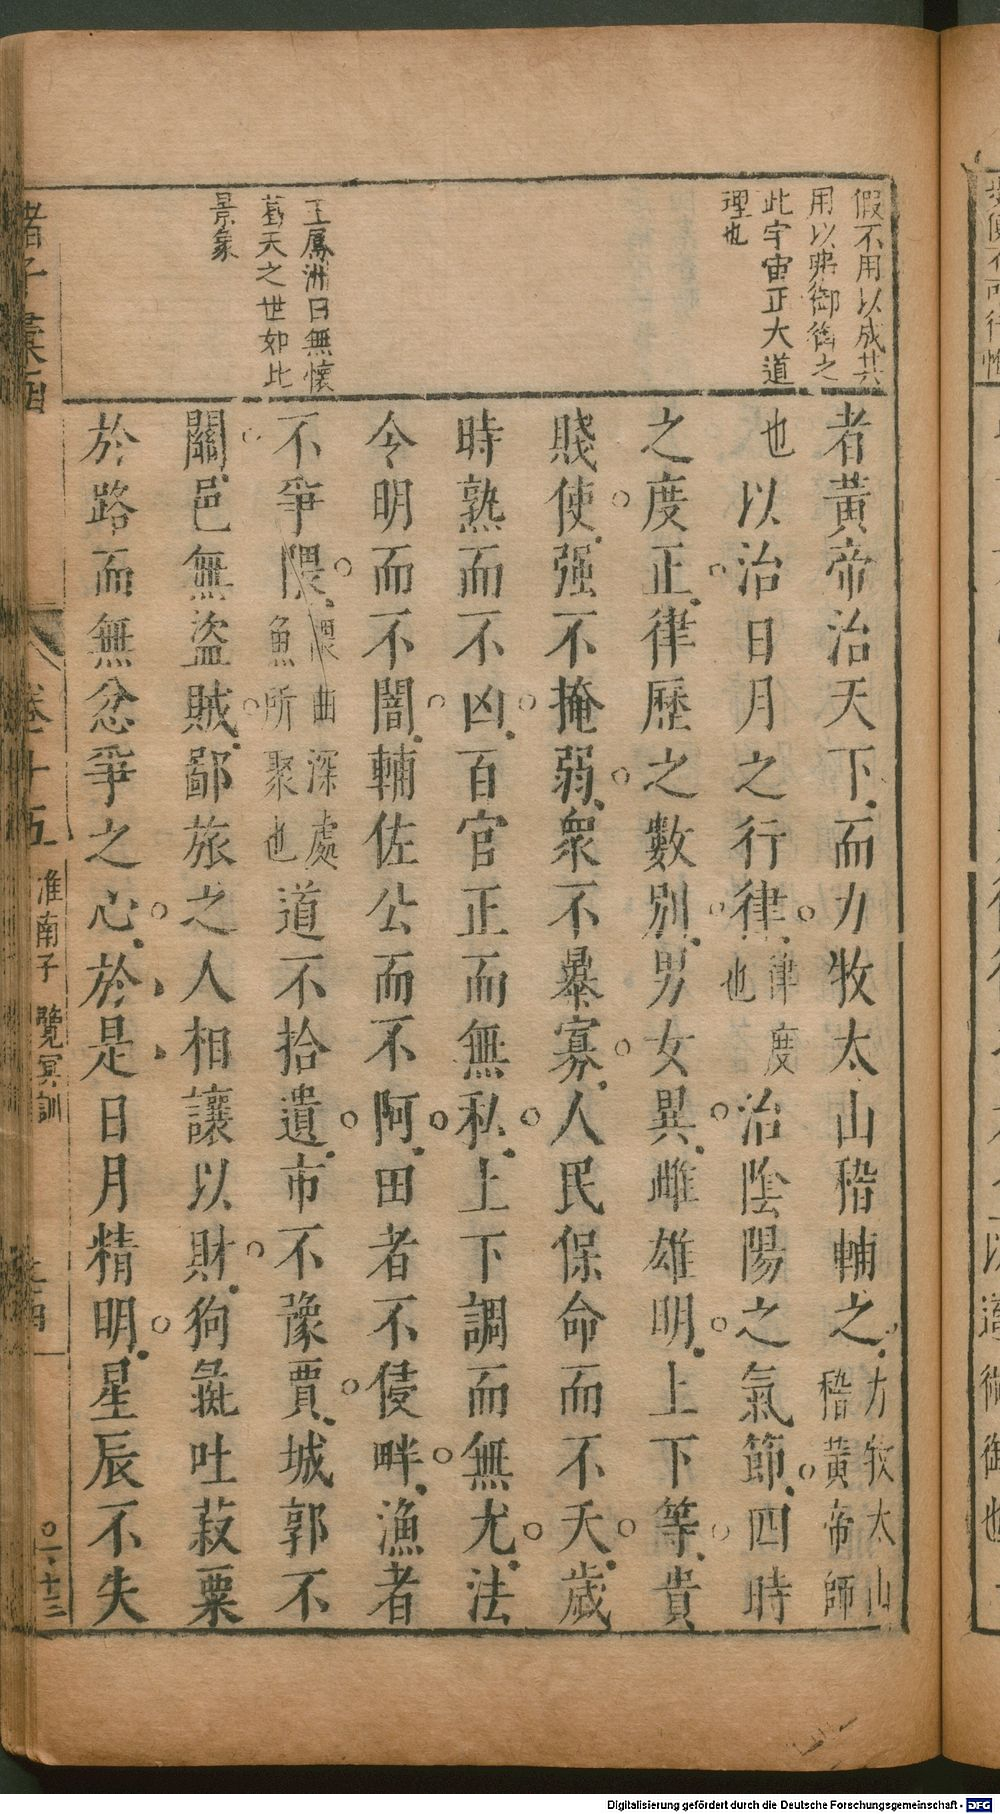 假不用以成其
用以弗御御之
此宇宙正大道
理也
王鳳洲曰無懷
葛天之世如此
景象
者黃帝治天下而力牧太山稽輔之力牧太山
稽黃帝師
也以治日月之行律律度
也治陰陽之氣節四時
之度正律歷之數別男女異雌雄明上下等貴
賤使强不掩弱衆不暴寡人民保命而不夭歲
時熟而不凶百官正而無私上下調而無尤法
令明而不闇輔佐公而不阿田者不侵畔漁者
不爭隈隈曲深處
魚所聚也道不拾遺市不豫賈城郭不
關邑無盜賊鄙旅之人相讓以財狗彘吐菽粟
於路而無忿爭之心於是日月精明星辰不失
諸子彙函
卷十五
淮南子 覽冥訓
○一·十三
Digitalisierung gefördert durch die Deutsche Forschungsgemeinschaft - DFG